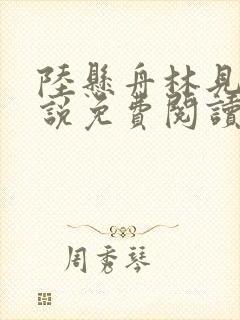 陸懸舟林見
說免費閱讀
周秀琴